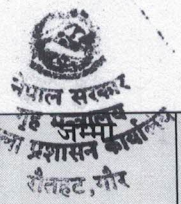 नेपाल सरकार
गृह मन्त्रालय
जम्मा
प्रशासन कार्यालय
रौतहट, गौर